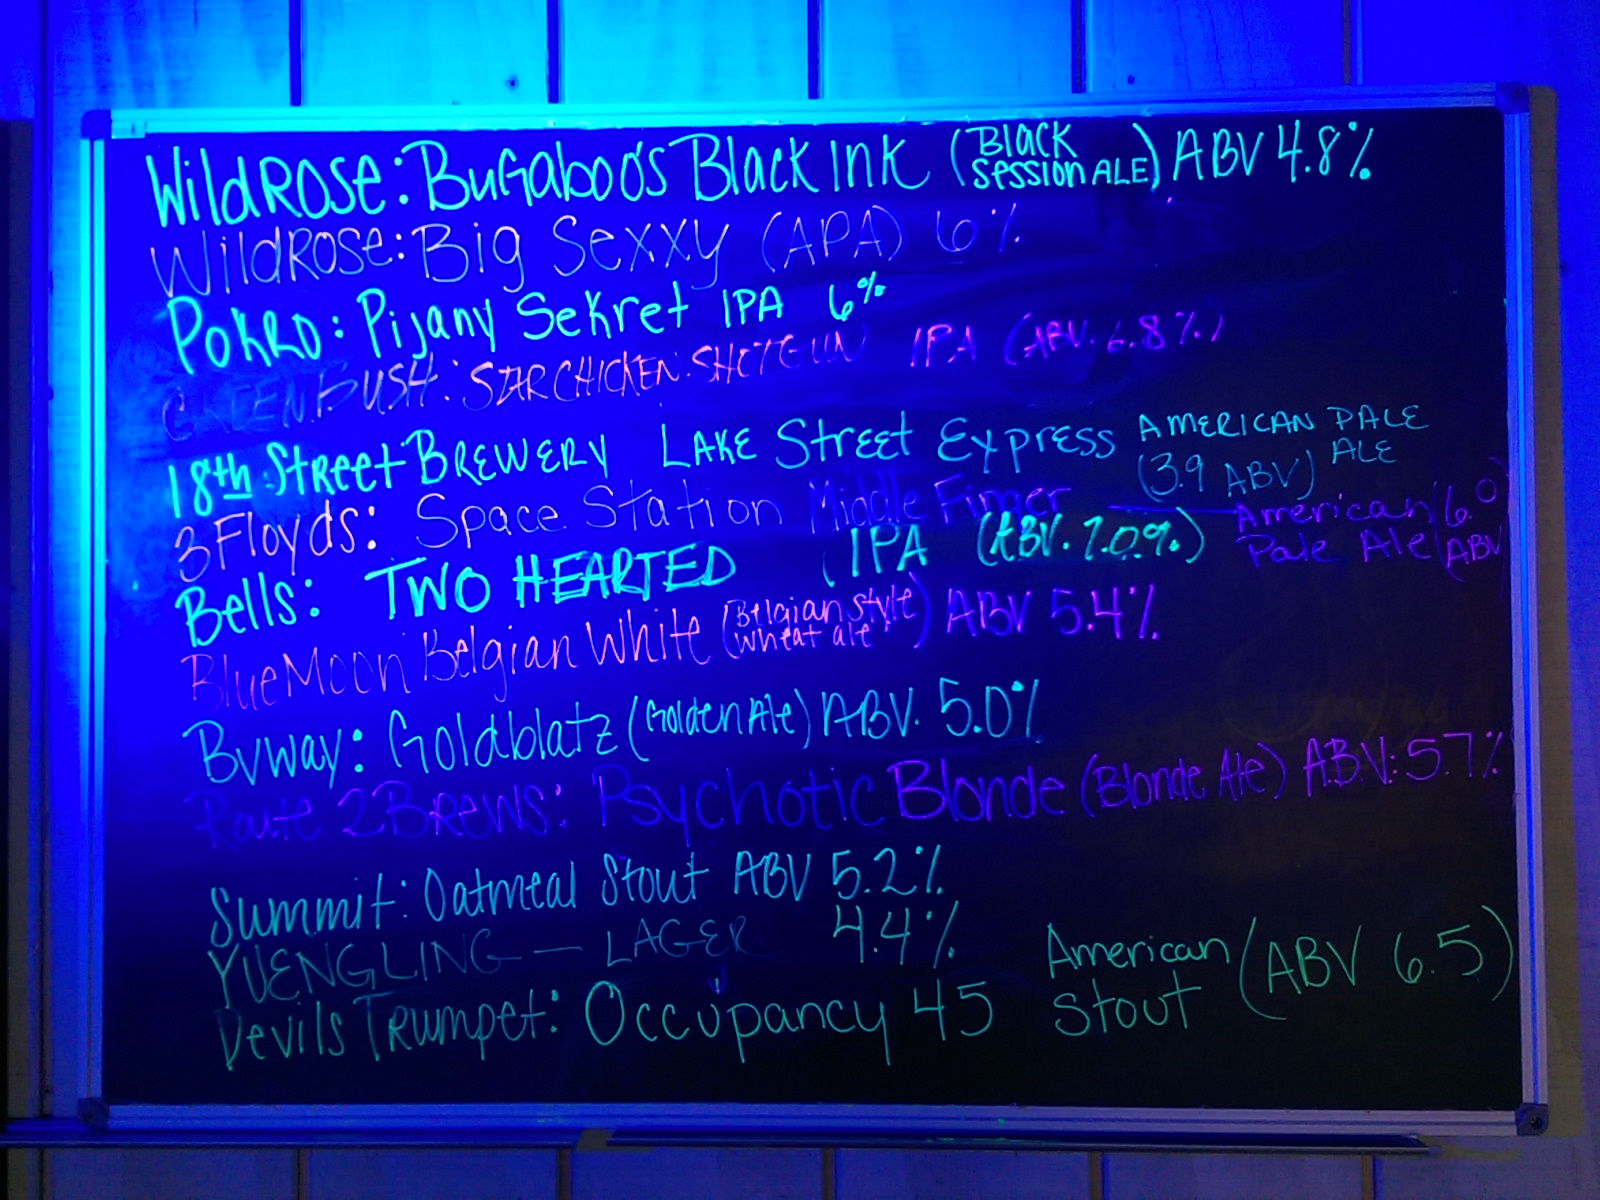 WildRose: Bugaboo's Black Ink (Black Session ALE) ABV 4.8%
WildRose: Big Sexxy (APA) 6%
POKRO: Pijany Sekret IPA 6%
GREENBUSH: STARCHICKEN SHOTGUN IPA (ABV. 6.8%)
18th Street BREWERY LAKE Street Express AMERICAN PALE ALE (3.9 ABV)
3 Floyds: Space Station Middle Finger — American Pale Ale (6.0 ABV)
Bells: TWO HEARTED (IPA (ABV. 7.0%)
Blue Moon Belgian White (Belgian style wheat ale) ABV 5.4%
Bvway: Goldblatz (Golden Ale) ABV. 5.0%
Route 2 BREWS: Psychotic Blonde (Blonde Ale) A.B.V: 5.7%
Summit: Oatmeal Stout ABV 5.2%
YUENGLING — LAGER 4.4%
Devils Trumpet: Occupancy 45 American Stout (ABV 6.5)